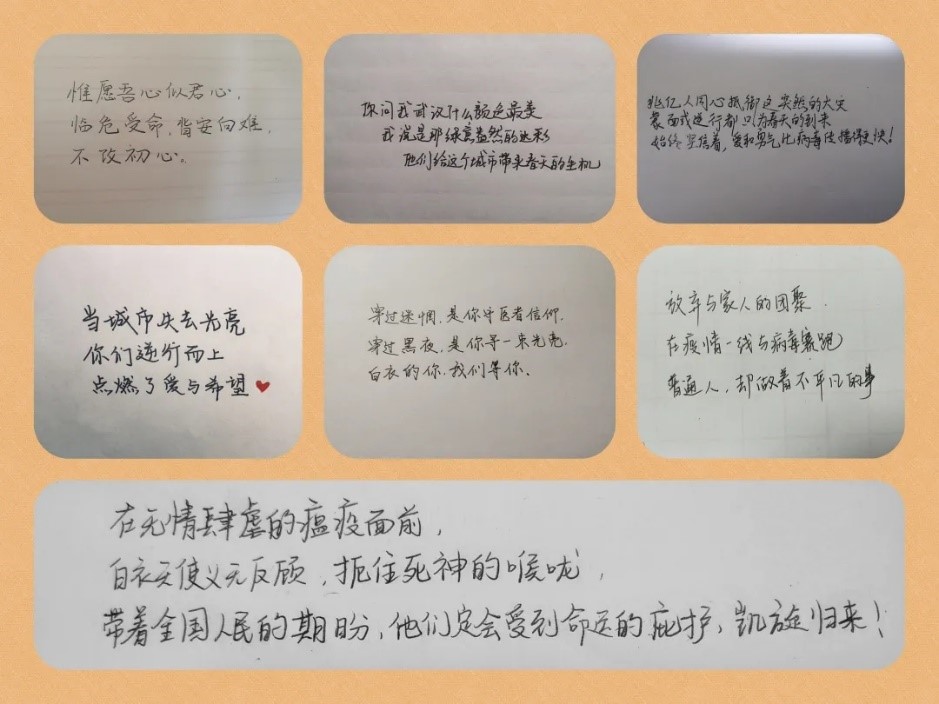 惟愿吾心似君心，
临危受命，背安向难，
不改初心。
你问我武汉什么颜色最美
我说是那绿意盎然的迷彩
他们给这个城市带来春天的生机
兆亿人同心抵御这突然的大灾
蒙面或逆行都只为春天的到来
始终坚信着，爱和勇气比病毒传播得更快！
当城市失去光亮
你们逆行而上
点燃了爱与希望
穿过迷惘，是你许医者信仰，
穿过黑夜，是你等一束光亮，
白衣的你，我们等你。
放弃与家人的团聚，
在疫情一线与病毒赛跑
普通人，却做着不平凡的事
在无情肆虐的瘟疫面前，
白衣天使义无反顾，扼住死神的喉咙，
带着全国人民的期盼，他们定会受到命运的庇护，凯旋归来！